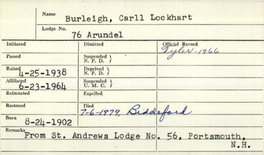 Name
Burleigh, Carll Lockhart
Lodge No.
76 Arundel
Initiated Dimitted Official Record
Tyler-1966
Passed Suspended N. P. D.
Raised Deprived N. P. D.
4-25-1938
Affiliated Suspended U. M. C.
6-23-1964
Reinstated Expelled
Restored Died
7-6-1979, Biddeford
Born
8-24-1902
Remarks
From St. Andrews Lodge No. 56, Portsmouth,
N.H.